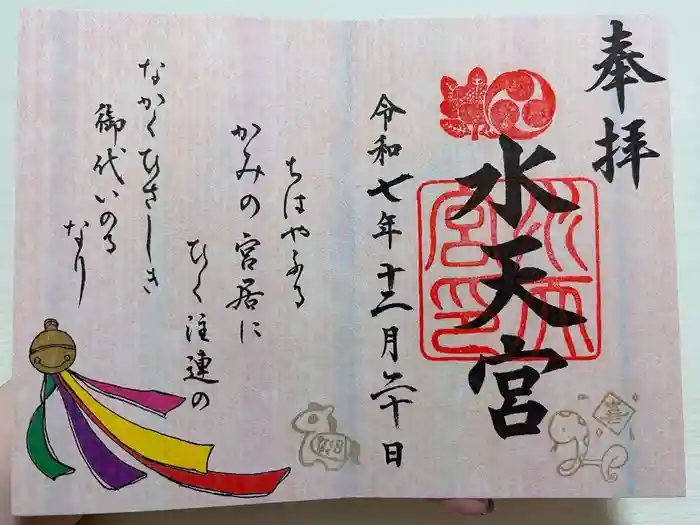 奉拝
水天宮
令和七年十二月二十日
ちはやふる
かみの宮居に
ひく注連の
なかくひさしき
御代いのる
なり